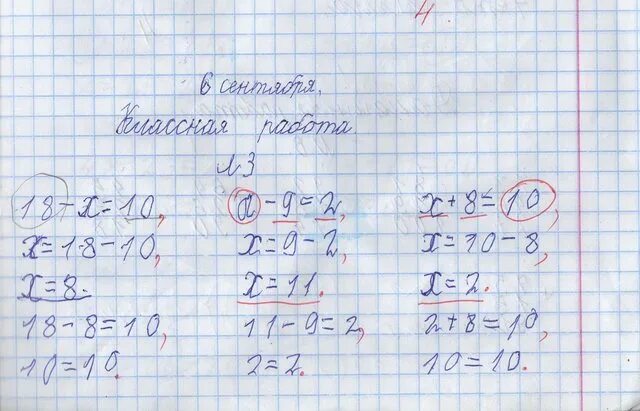 4.
6 сентября.
Классная работа
№3
18 - x = 10, x - 9 = 2, x + 8 = 10,
x = 18 - 10, x = 9 - 2, x = 10 - 8,
x = 8. x = 11. x = 2.
18 - 8 = 10, 11 - 9 = 2, 2 + 8 = 10,
10 = 10. 2 = 2. 10 = 10.